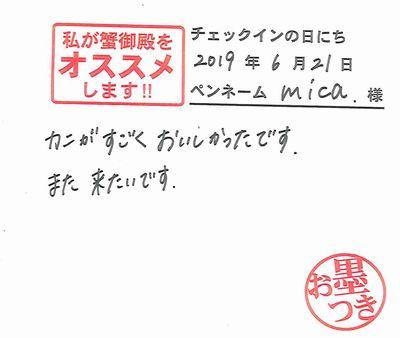 私が蟹御殿を
オススメ
します!!
チェックインの日にち
2019 年 6 月 21 日
ペンネーム mica. 様
カニがすごく おいしかったです.
また 来たいです.
お墨つき